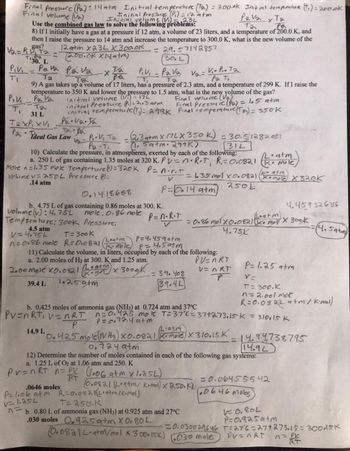 Final Pressure (P₂) = 14 atm Initial temperature (T₁) = 200.0K Initial temperature (T₂) = 300.0K
Final volume (V₂) Initial Pressure (P₁) = 12 atm
Initial volume (V₁) = 23L
Use the combined gas law to solve the following problems:
8) If I initially have a gas at a pressure of 12 atm, a volume of 23 liters, and a temperature of 200.0 K, and then I raise the pressure to 14 atm and increase the temperature to 300.0 K, what is the new volume of the gas?
12 atm x 23L x 300.0K = 29.57142857
(200.0K x 14 atm)
30. L
30. L
9) A gas takes up a volume of 17 liters, has a pressure of 2.3 atm, and a temperature of 299 K. If I raise the temperature to 350 K and lower the pressure to 1.5 atm, what is the new volume of the gas?
initial volume (V₁) = 17L Final volume (V₂)
initial Pressure (P₁) = 2.3 atm Final Pressure (P₂) = 1.5 atm
initial temperature (T₁) = 299K Final temperature (T₂) = 350K
31 L
Ideal Gas Law
(2.3 atm x 17L x 350K) = 30.5128205
(1.5 atm x 299K) 31L
10) Calculate the pressure, in atmospheres, exerted by each of the following:
a. 250 L of gas containing 1.35 moles at 320 K. PV = n·R·T, R = 0.0821 (L·atm/K·mole)
Mole n = 1.35 mole Temperature(T) = 320K P = n·R·T/V
Volume V = 250L Pressure P:
= 1.35 mol x 0.0821 (L·atm/K·mole) x 320K
250L
.14 atm
0.1418688
P = 0.14 atm
b. 4.75 L of gas containing 0.86 moles at 300. K. 4.45932635
Volume (V) = 4.75L mole = 0.86 mole P = n·R·T/V
Temperature: 300K Pressure:
= 0.86 mol x 0.0821 (L·atm/K·mole) x 300K
4.75L
= 4.5 atm
4.5 atm
V = 4.75L T = 300K
n = 0.86 mole R = 0.0821 (L·atm/K·mole) P = 4.459 atm
P = 4.5 atm
11) Calculate the volume, in liters, occupied by each of the following:
a. 2.00 moles of H₂ at 300. K and 1.25 atm.
PV = nRT
V = nRT/P
P = 1.25 atm
V =
T = 300.K
n = 2.00 mol
R = 0.0821 (L·atm/K·mol)
2.00 mole x 0.0821 (L·atm/K·mole) x 300K = 39.408
1.25 atm
39.4 L
39.4L
b. 0.425 moles of ammonia gas (NH₃) at 0.724 atm and 37°C
PV = nRT, V = nRT/P n = 0.425 mole T = 37°C = 37+273.15K = 310.15K
P = 0.724 atm
14.9 L
0.425 mole (NH₃) x 0.0821 (L·atm/K·mole) x 310.15K = 14.94738795
0.724 atm
14.9L
12) Determine the number of moles contained in each of the following gas systems:
a. 1.25 L of O₂ at 1.06 atm and 250. K
PV = nRT n = PV/RT (1.06 atm x 1.25L)
(0.0821 (L·atm/K·mol) x 250.K) = 0.06455542
.0646 moles
0.0646 moles
P = 1.06 atm R = 0.0821 (L·atm/K·mol)
V = 1.25L T = 250.K
n =
b. 0.80 L of ammonia gas (NH₃) at 0.925 atm and 27°C
.030 moles
0.925 atm x 0.80L
(0.0821 L·atm/mol x 300.15K) = 0.03002964
.030 mole
V = 0.80L
P = 0.925 atm
T = 27°C = 27+273.15 = 300.15K
PV = nRT n = PV/RT